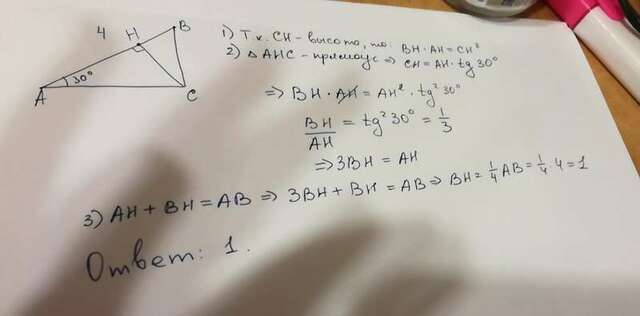 4 H B
30°
A C
1) Т.к. CH - высота, то: BH · AH = CH²
2) △ AHC - прямоуг ⇒ CH = AH · tg 30°
⇒ BH · AH = AH² · tg² 30°
BH/AH = tg² 30° = 1/3
⇒ 3BH = AH
3) AH + BH = AB ⇒ 3BH + BH = AB ⇒ BH = 1/4 AB = 1/4 · 4 = 1
Ответ: 1.